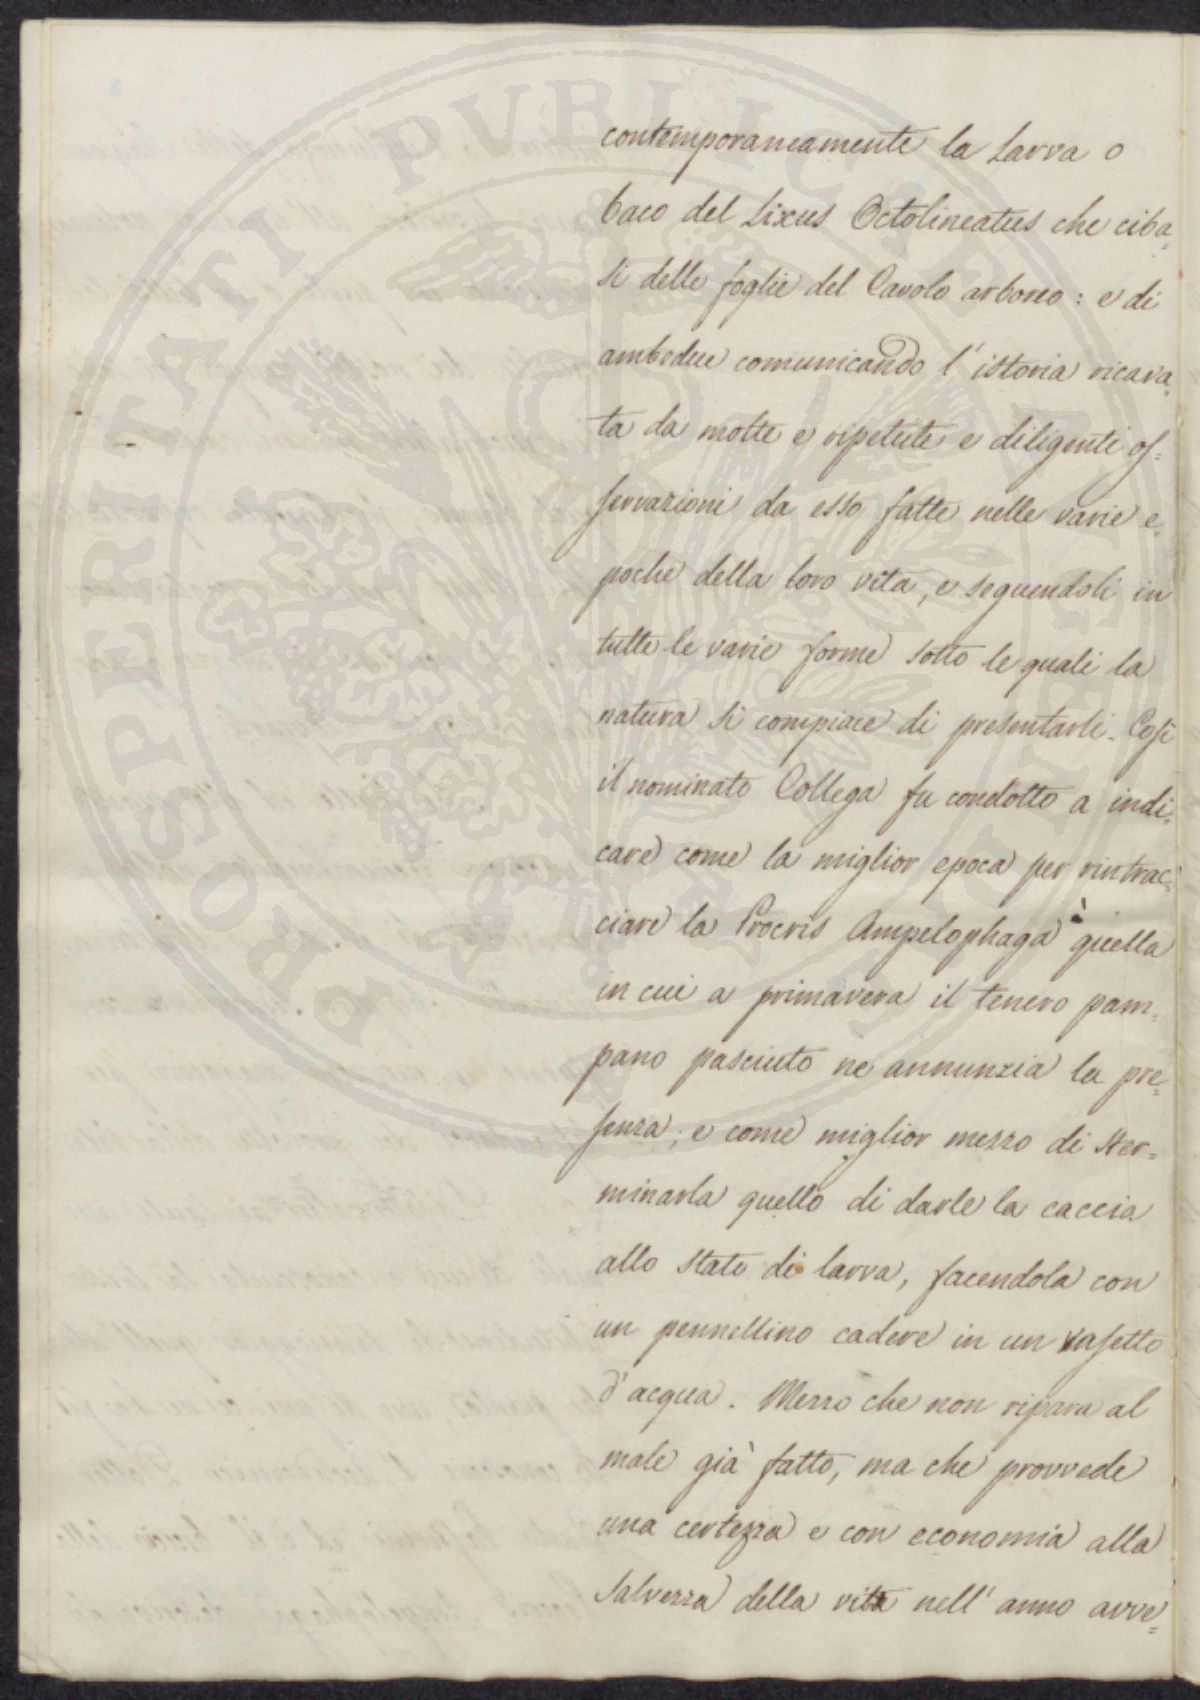 contemporaneamente la Larva o
baco del Lixus Octolineatus che ciba=
si delle foglie del Cavolo arboreo: e di
ambedue comunicando l'istoria ricava=
ta da molte e ripetute e diligenti os=
servazioni da esso fatte nelle varie e=
poche della loro vita, e seguendoli in
tutte le varie forme sotto le quali la
natura si compiace di presentarli. Così
il nominato Collega fu condotto a indi=
care come la miglior epoca per rintrac=
ciare la Procris Ampelophaga è quella
in cui a primavera il tenero pam=
pano pasciuto ne annunzia la pre=
senza; e come miglior mezzo di ster=
minarla quello di darle la caccia
allo stato di larva, facendola con
un pennellino cadere in un vasetto
d'acqua. Mezzo che non ripara al
male già fatto, ma che provvede
una certezza e con economia alla
salvezza della vita nell'anno avve=
PROSPERITATI PVBLICAE